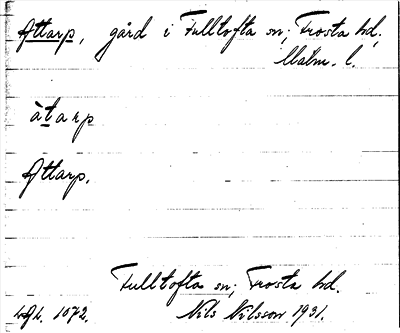 Attarp, gård i Fulltofta sn; Frosta hd,
Malm. l.
àtarp
Attarp.
Fulltofta sn; Frosta hd.
1072. Nils Nilsson 1931.